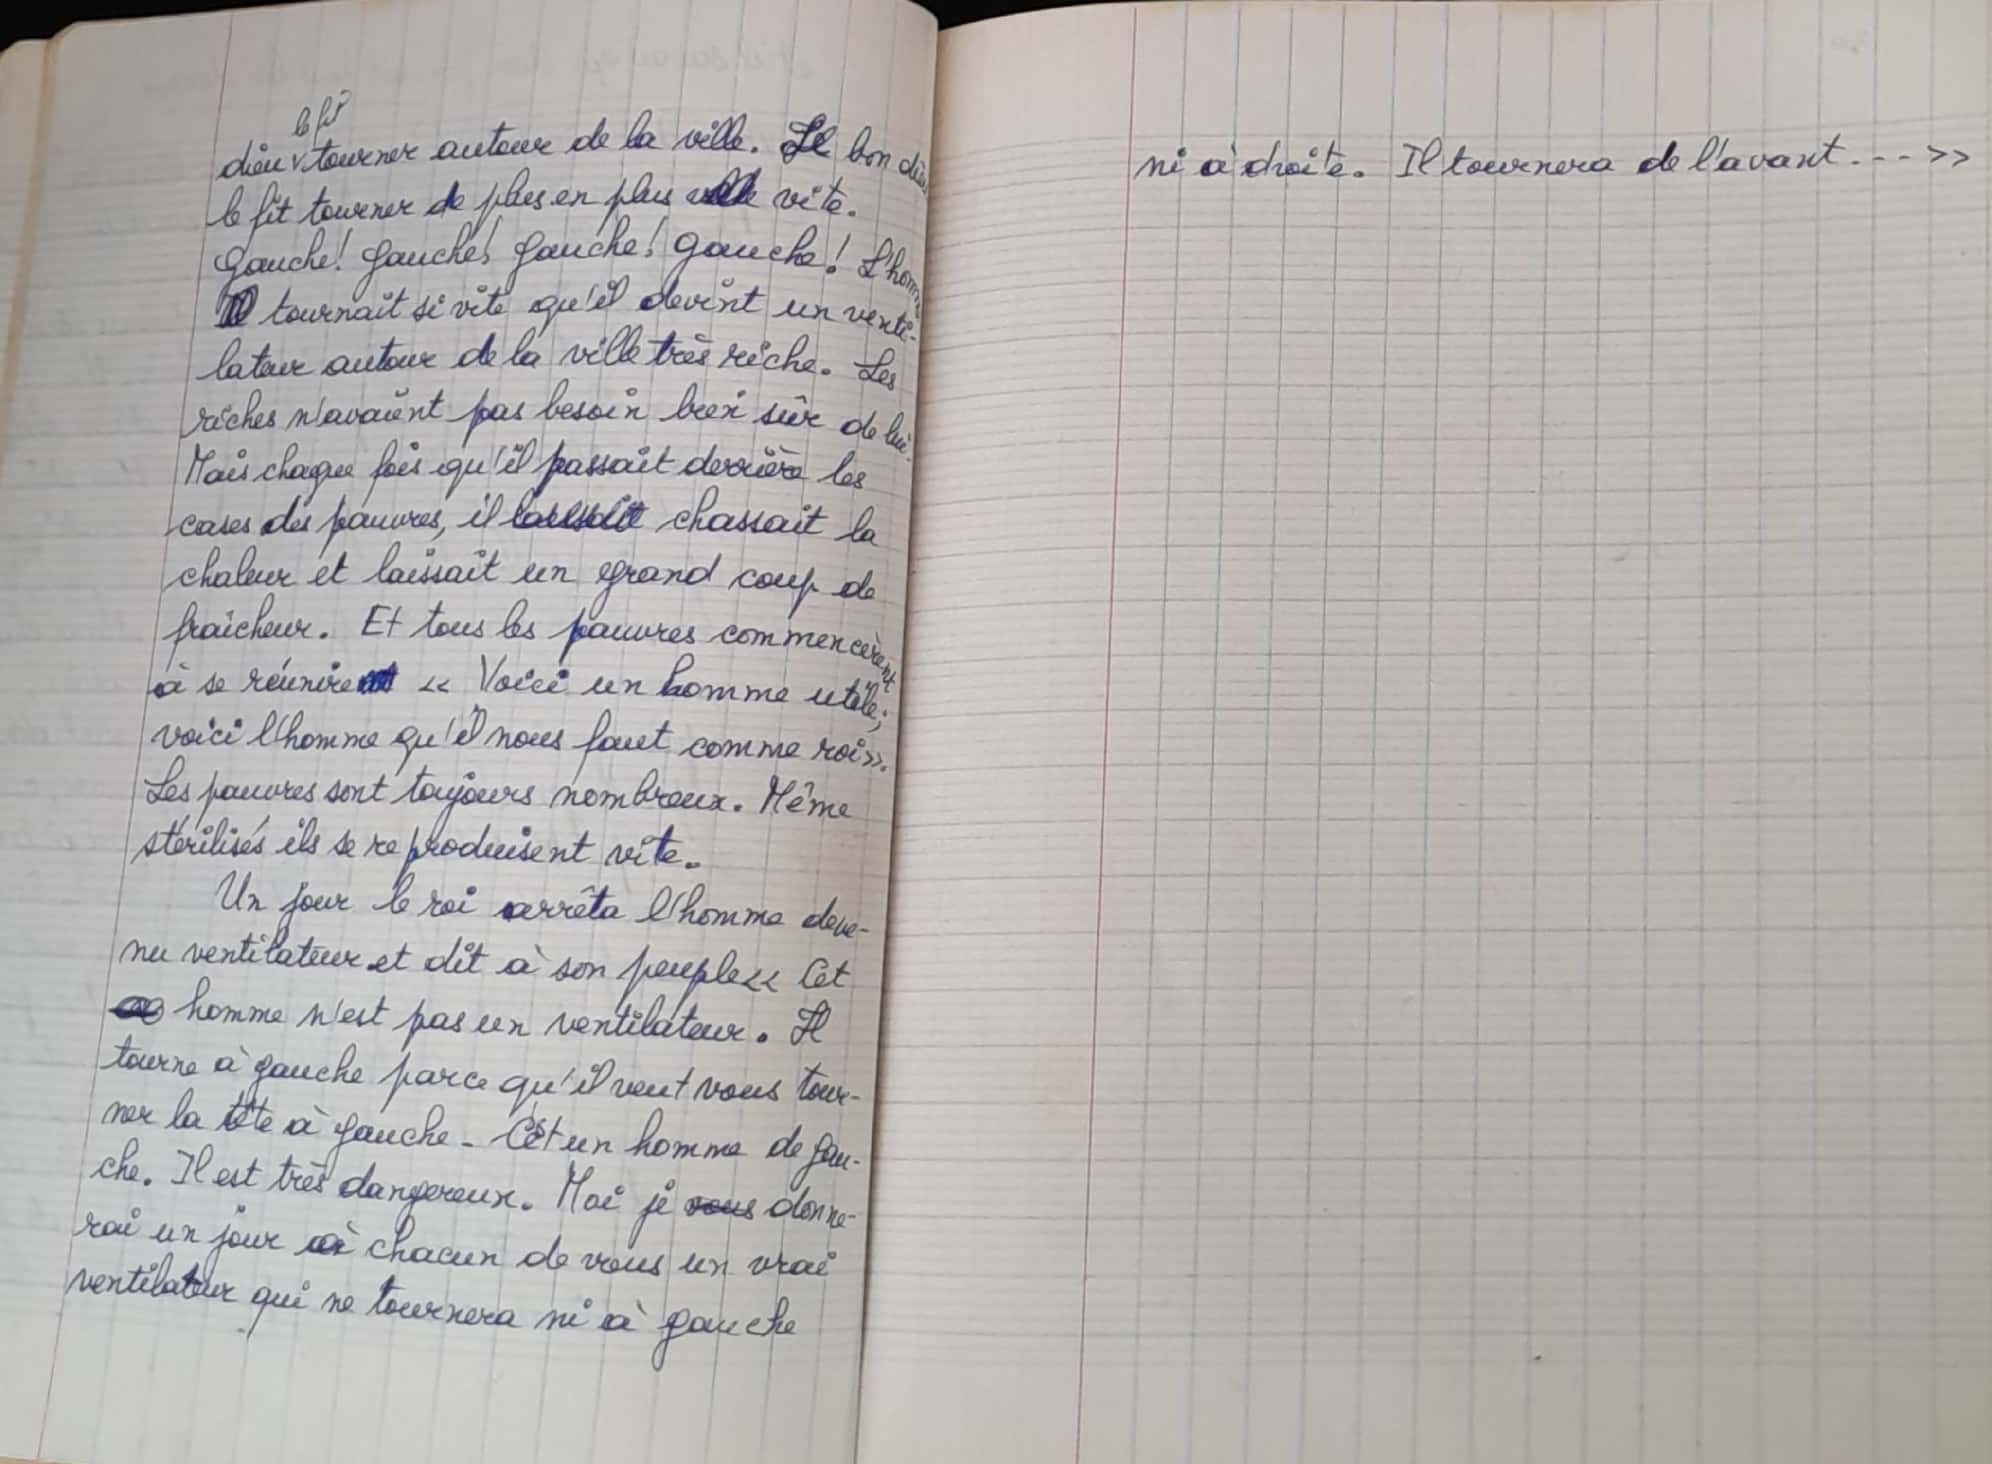 dieu le fit tourner autour de la ville. Le bon dieu
le fit tourner de plus en plus vite.
Gauche! Gauche! Gauche! Gauche! L'homme
tournait si vite qu'il devint un venti-
lateur autour de la ville très riche. Les
riches n'avaient pas besoin bien sûr de lui.
Mais chaque fois qu'il passait derrière les
cases des pauvres, il chassait la
chaleur et laissait un grand coup de
fraîcheur. Et tous les pauvres commencèrent
à se réunir << Voici un homme utile;
voici l'homme qu'il nous faut comme roi>>.
Les pauvres sont toujours nombreux. Même
stérilisés ils se reproduisent vite.
Un jour le roi arrêta l'homme deve-
nu ventilateur et dit à son peuple << Cet
homme n'est pas un ventilateur. Il
tourne à gauche parce qu'il veut vous tour-
ner la tête à gauche - C'est un homme de gau-
che. Il est très dangereux. Moi je vous donne-
rai un jour à chacun de vous un vrai
ventilateur qui ne tournera ni à gauche
ni à droite. Il tournera de l'avant---->>